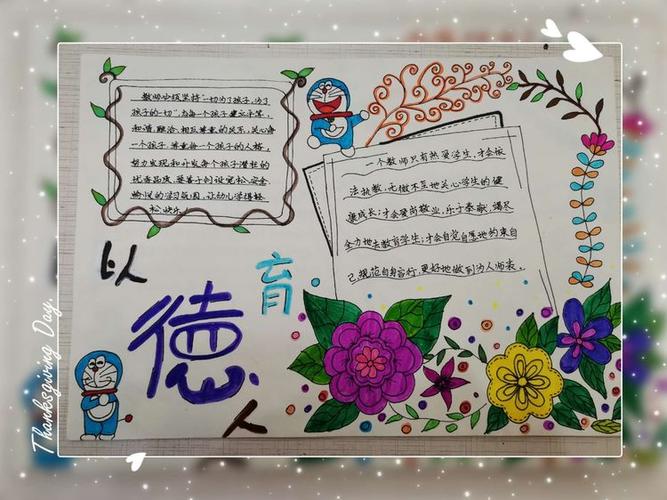 教师必须坚持“一切为了孩子,为了
孩子的一切”,与每个孩子建立平等、
和谐、融洽、相互尊重的关系,关心每
一个孩子,尊重每一个孩子的人格,
努力发现和开发每个孩子潜在的
优秀品质,要善于创设宽松、安全、
愉悦的学习氛围,让幼儿学得轻
松、快乐
一个教师只有热爱学生,才会依
法执教,无微不至地关心学生的健
康成长;才会爱岗敬业,乐于奉献,竭尽
全力地去教育学生;才会自觉自愿地约束自
己,规范自身言行,更好地做到为人师表。
以
德
育
人
Thanksgiving Day.